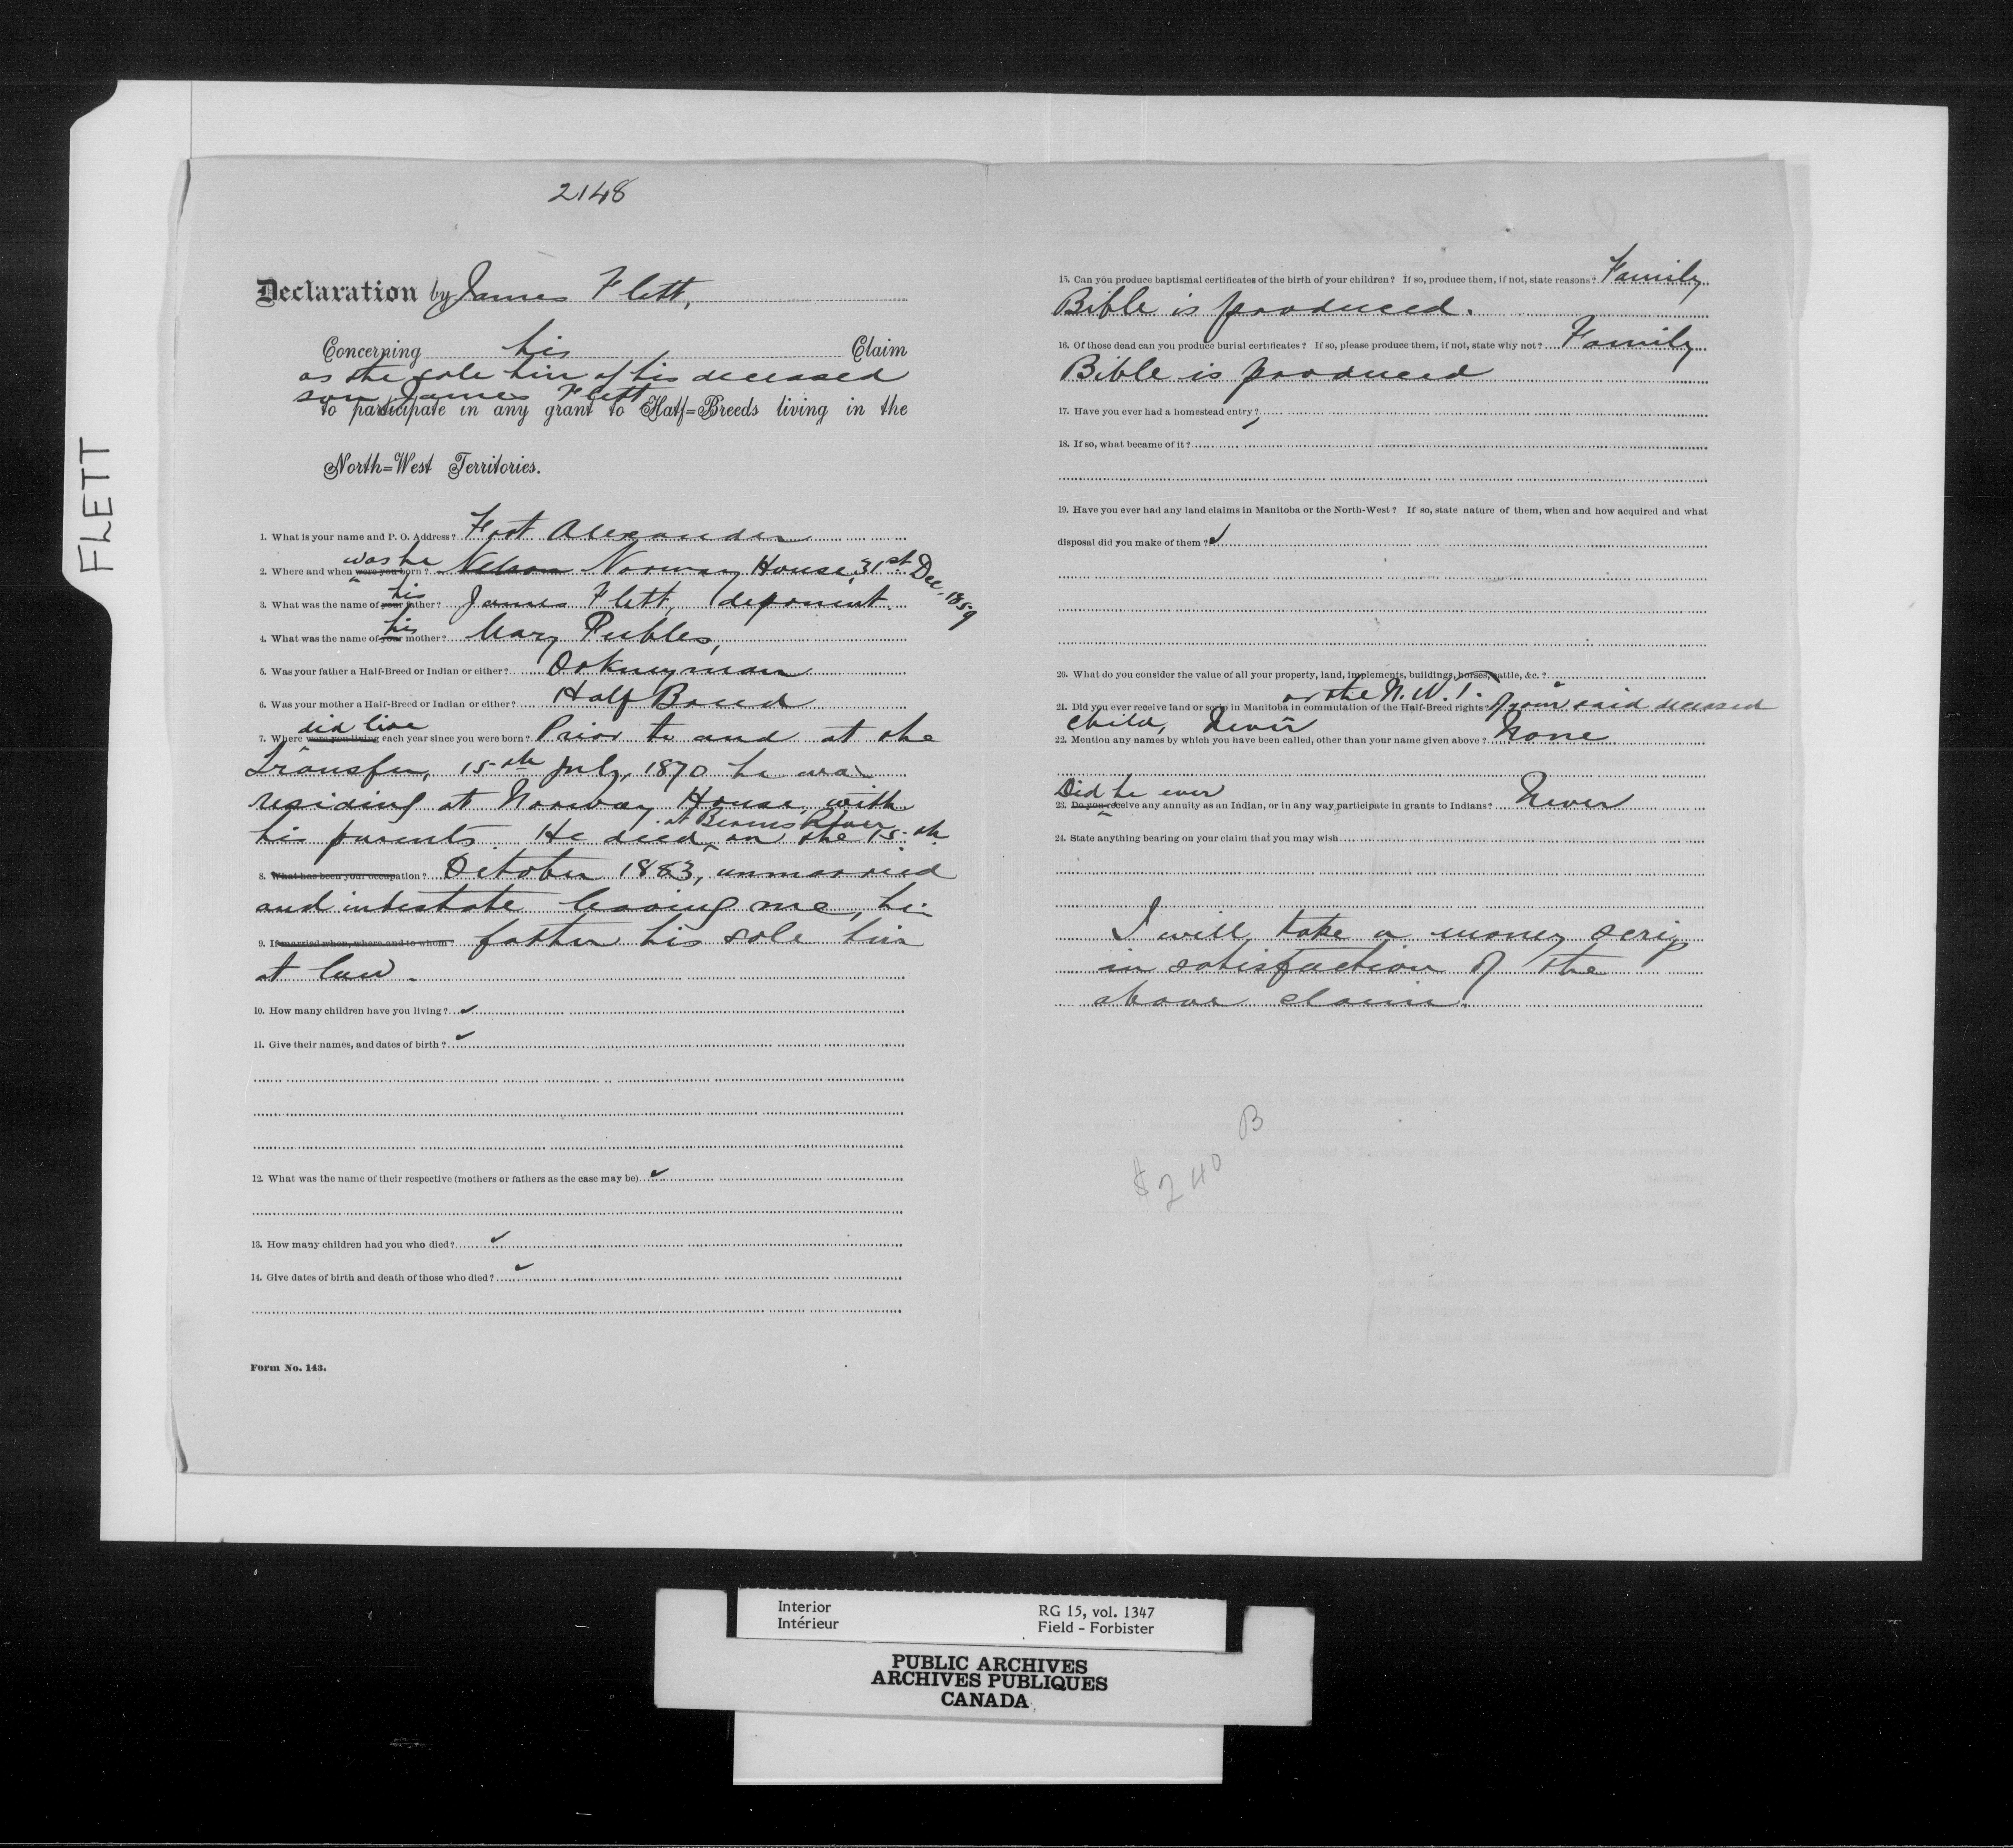 FLETT
2148
Declaration by James Flett,
Concerning his Claim
as the sole heir of his deceased
son James Flett
to participate in any grant to Half=Breeds living in the
North=West Territories.
1. What is your name and P. O. Address? Fort Alexander
was he
2. Where and when were you born? Nelson Norway House, 31st Dec. 1859
his
3. What was the name of your father? James Flett, deponent.
his
4. What was the name of your mother? Mary Peebles,
5. Was your father a Half-Breed or Indian or either? Orkneyman
6. Was your mother a Half-Breed or Indian or either? Half Breed
did live
7. Where were you living each year since you were born? Prior to and at the
Transfer, 15th July, 1870 he was
residing at Norway House, with
at Berens River
his parents. He died on the 15th
8. What has been your occupation? October 1883, unmarried
and intestate leaving me, his
9. If married when, where and to whom? father his sole heir
at law.
10. How many children have you living?
11. Give their names, and dates of birth?
12. What was the name of their respective (mothers or fathers as the case may be)
13. How many children had you who died?
14. Give dates of birth and death of those who died?
Form No. 143.
15. Can you produce baptismal certificates of the birth of your children? If so, produce them, if not, state reasons? Family
Bible is produced.
16. Of those dead can you produce burial certificates? If so, please produce them, if not, state why not? Family
Bible is produced
17. Have you ever had a homestead entry?
18. If so, what became of it?
19. Have you ever had any land claims in Manitoba or the North-West? If so, state nature of them, when and how acquired and what
disposal did you make of them?
20. What do you consider the value of all your property, land, implements, buildings, horses, cattle, &c.?
or the N.W.T.
21. Did you ever receive land or scrip in Manitoba in commutation of the Half-Breed rights? of your said deceased
child, Never
22. Mention any names by which you have been called, other than your name given above? None
Did he ever
23. Do you receive any annuity as an Indian, or in any way participate in grants to Indians? Never
24. State anything bearing on your claim that you may wish
I will take a money scrip
in satisfaction of the
above claim.
B
$240
Interior
Intérieur
RG 15, vol. 1347
Field - Forbister
PUBLIC ARCHIVES
ARCHIVES PUBLIQUES
CANADA